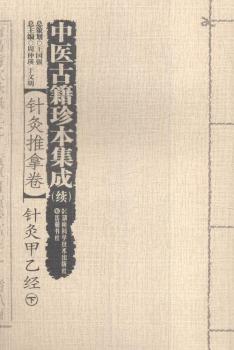 中医古籍珍本集成
(续)
【针灸推拿卷】
针灸甲乙经
下
总策划◎王国强
总主编◎周仲瑛 于文明
湖南科学技术出版社
岳麓书社